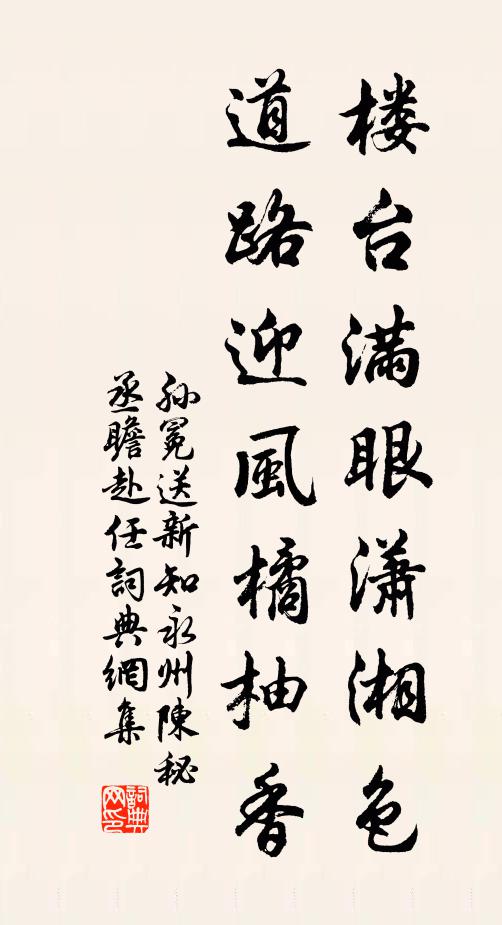 楼台满眼潇湘色
道路迎風橘柚香
孙冕送新知永州陳秘
丞瞻赴任詞典網集
詞典网印